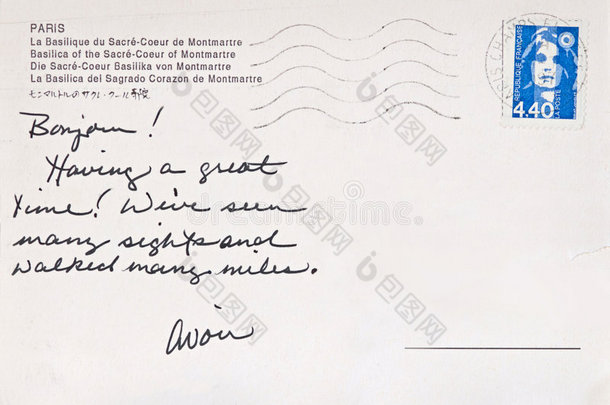 PARIS
La Basilique du Sacré-Coeur de Montmartre
Basilica of the Sacré-Coeur of Montmartre
Die Sacré-Coeur Basilika von Montmartre
La Basilica del Sagrado Corazon de Montmartre
モンマルトルのサクレ・クール寺院
PARIS CHAMPS
REPUBLIQUE FRANÇAISE
4,40
LA POSTE
Bonjour!
Having a great
time! We've seen
many sights and
walked many miles.
Avoir
包图网
dreamstime